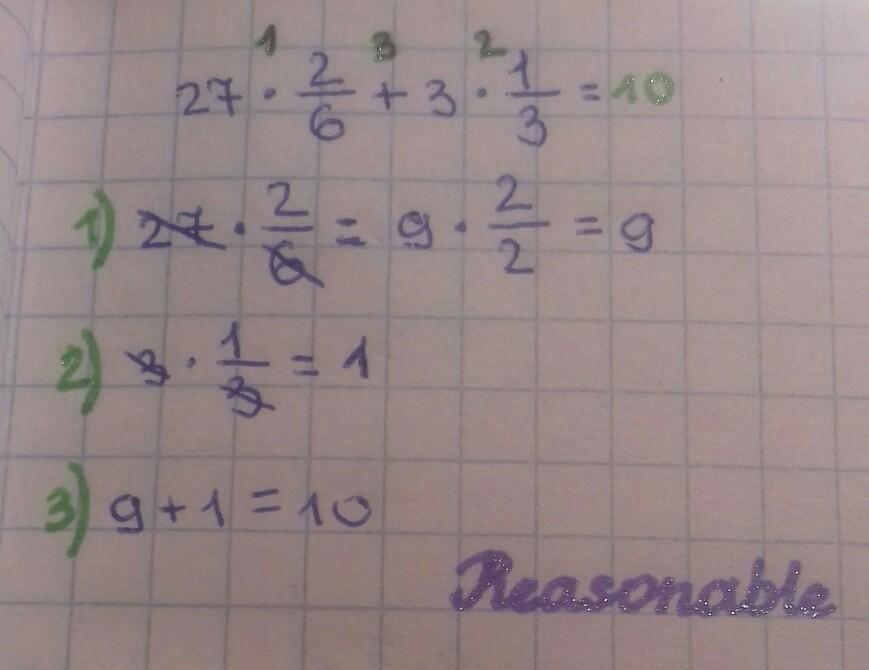 1 3 2
27 · 2/6 + 3 · 1/3 = 10
1) 27 · 2/6 = 9 · 2/2 = 9
2) 3 · 1/3 = 1
3) 9 + 1 = 10
Reasonable